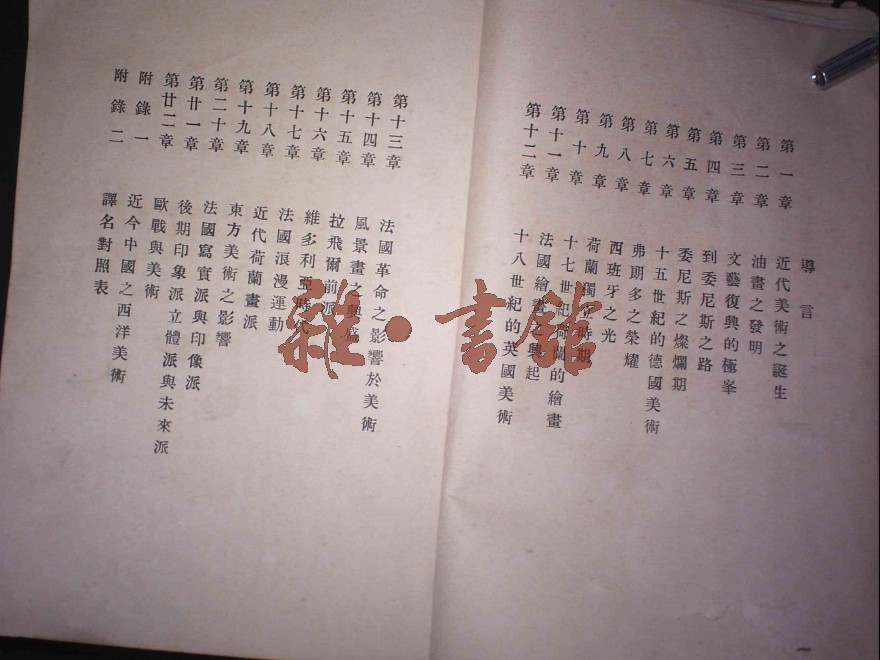 導言
第一章 近代美術之誕生
第二章 油畫之發明
第三章 文藝復興的極峯
第四章 到委尼斯之路
第五章 委尼斯之燦爛期
第六章 十五世紀的德國美術
第七章 弗朗多之榮耀
第八章 西班牙之光
第九章 荷蘭獨立時期
第十章 十七世紀荷蘭的繪畫
第十一章 法國繪畫之興起
第十二章 十八世紀的英國美術
一
第十三章 法國革命之影響於美術
第十四章 風景畫之興盛
第十五章 拉飛爾前派
第十六章 維多利亞時代
第十七章 法國浪漫運動
第十八章 近代荷蘭畫派
第十九章 東方美術之影響
第二十章 法國寫實派與印像派
第廿一章 後期印象派立體派與未來派
第廿二章 歐戰與美術
附錄一 近今中國之西洋美術
附錄二 譯名對照表
雜·書館